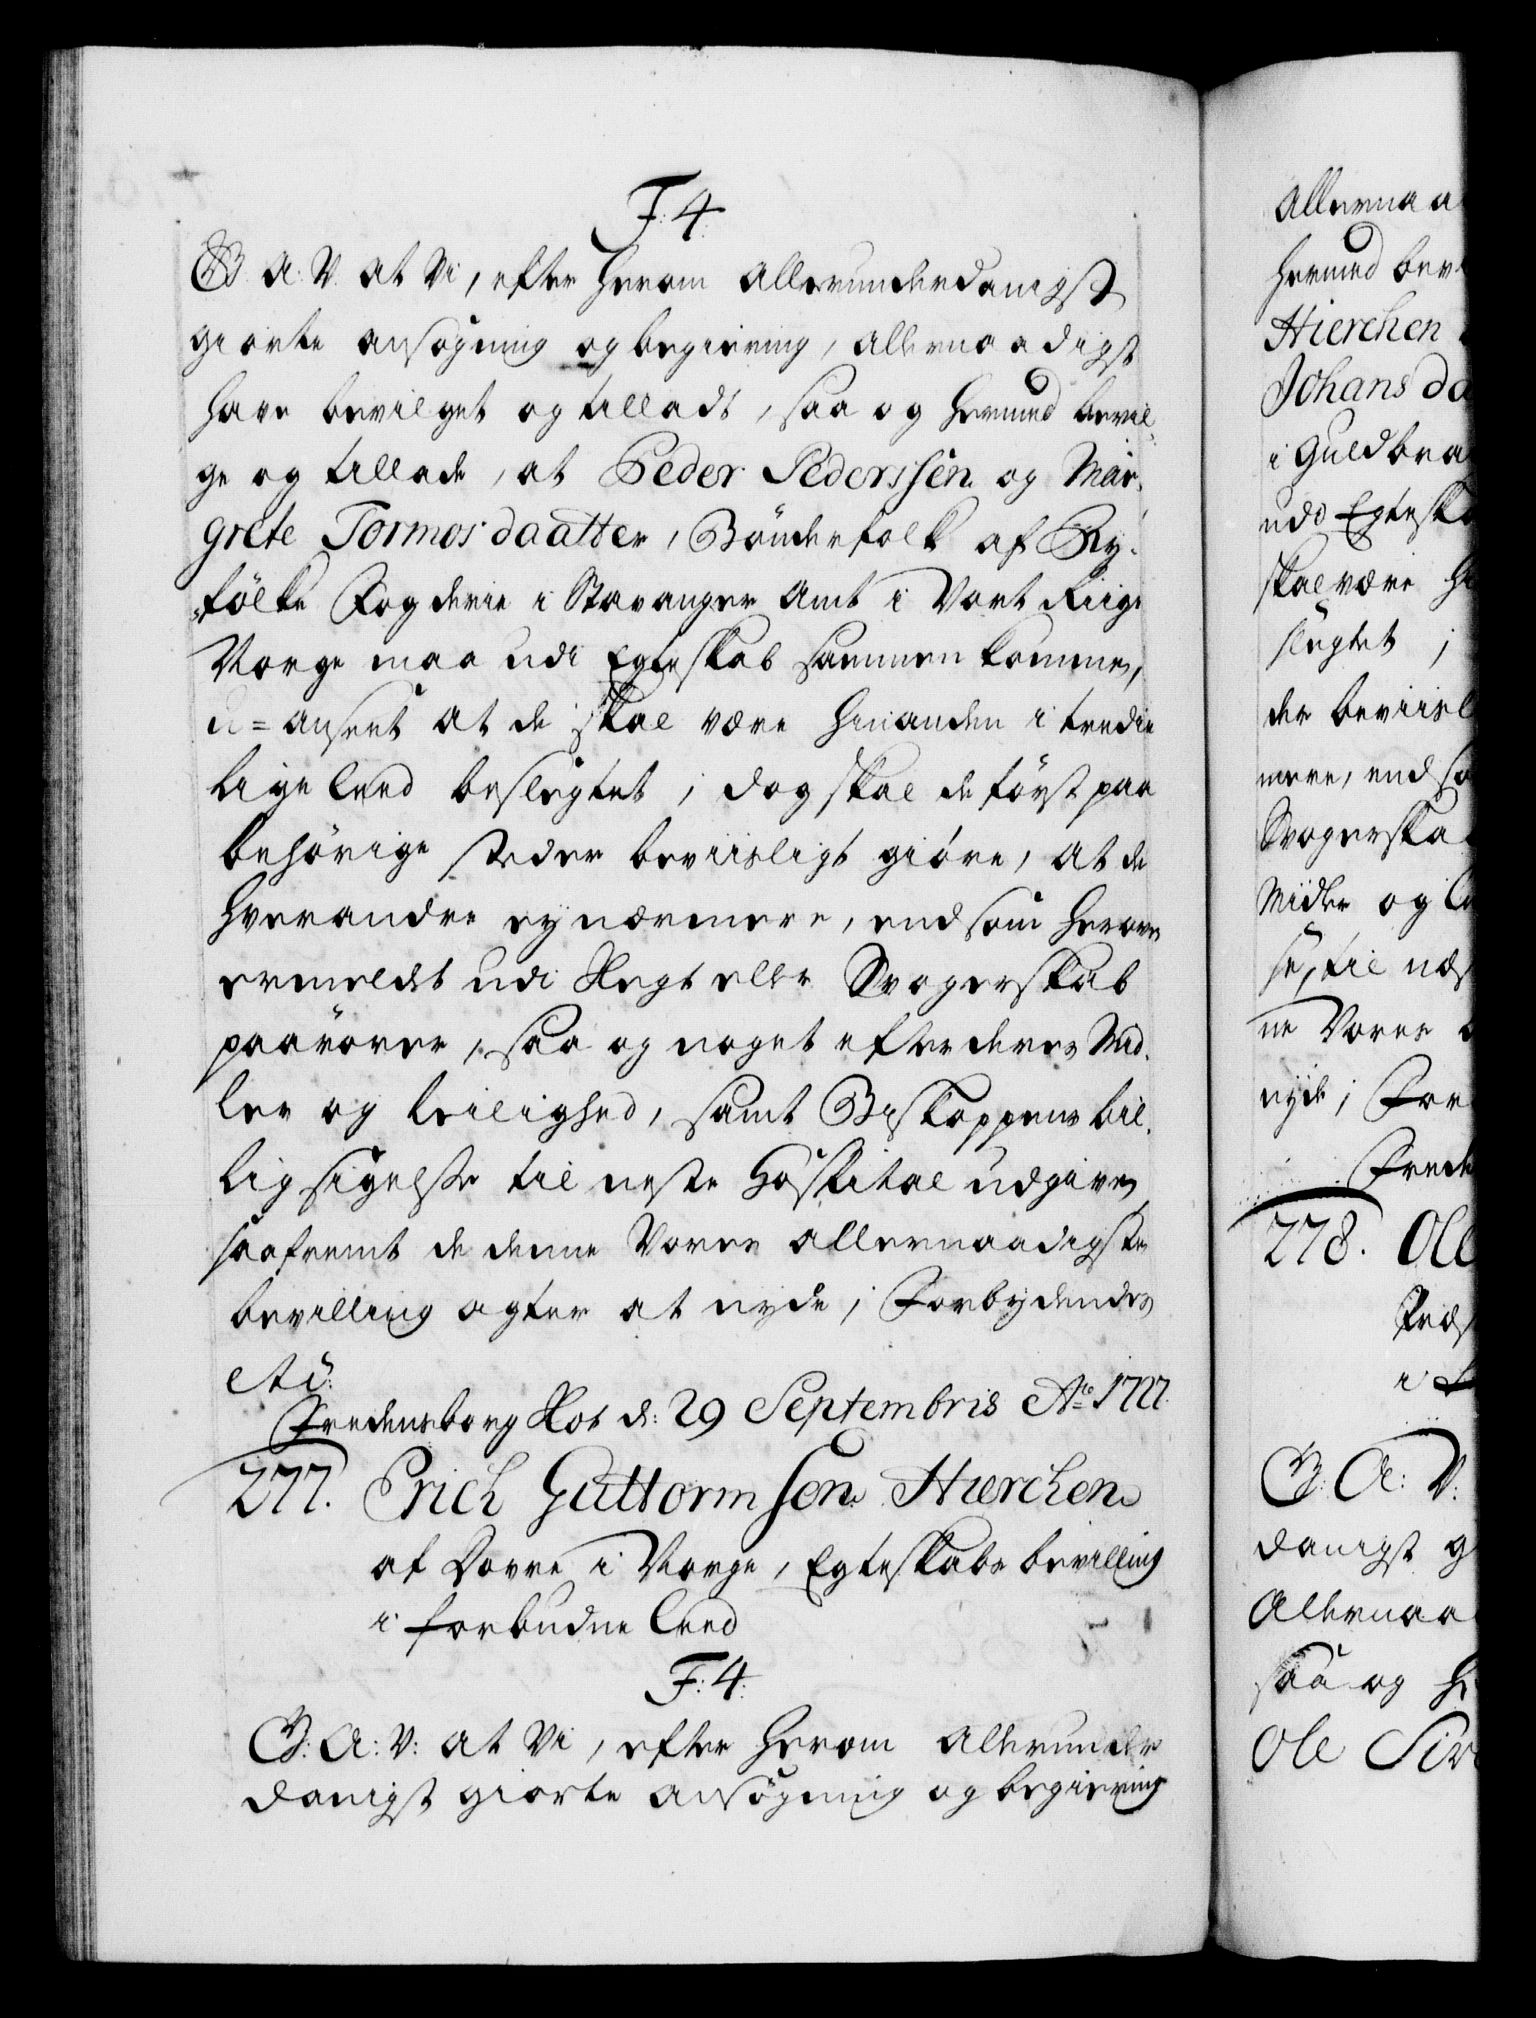 F: 4.
G. A: V. at Vi, efter herom allerunderdanigst
giorte ansögning og begiering, allernaadigst
have bevilget og tilladt, saa og hermed bevil-
ge og tillade, at Peder Pederssen og Mar-
grete Tormosdaatter, Bönderfolk af Ry-
fölke Fogderie i Stavanger Amt i Vort Riige
Norge maa udi Egteskab sammenkomme,
u=anseet at de skal være hinanden i tredie
lige Leed beslegtet; dog skal de först paa
behörige steder beviisligt giöre, at de
hverandre ey nærmere, end som herover
ermeldt udi Slegt eller Svogerskab
paarörer, saa og noget efter deres Mid-
ler og leilighed, samt Biskoppens bil-
lig sigelse til neste Hospital udgive,
saafremt de denne Vores allernaadigste
bevilling agter at nyde; Forbydendes
etc:
Fredensborg Slot d: 29 Septembris Ao 1727.
277. Erich Guttormsen Hierchen
af Dovre i Norge, Egteskabs bevilling
i forbudne Leed
F: 4.
G: A: V: at Vi, efter herom allerunder
danigst giorte ansögning og begiering
Allernaa
hermed bev
Hierchen
Johansda
i Guldbra
udd Egteska
skal være hi
slegtet;
der beviisl
mere, end so
Svogerska
Midler og le
se, til næs
ne Vores
nyde; For
Frede
278. Ole
i
G: A: V:
danigst g
Allernaa
saa og h
Ole Siv